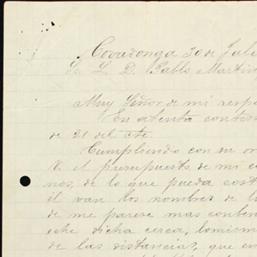 Covadonga 30 de Juli
Sr. L. D. Pablo Martin
Muy Señor de mi resp
En atenta contes
de 21 del cte
Cumpliendo con su or
el presupuesto de mi c
nos, de lo que pueda cost
el van los nombres de l
de me parece mas conben
este dicha cerca, tomiem
de las distancias, que en